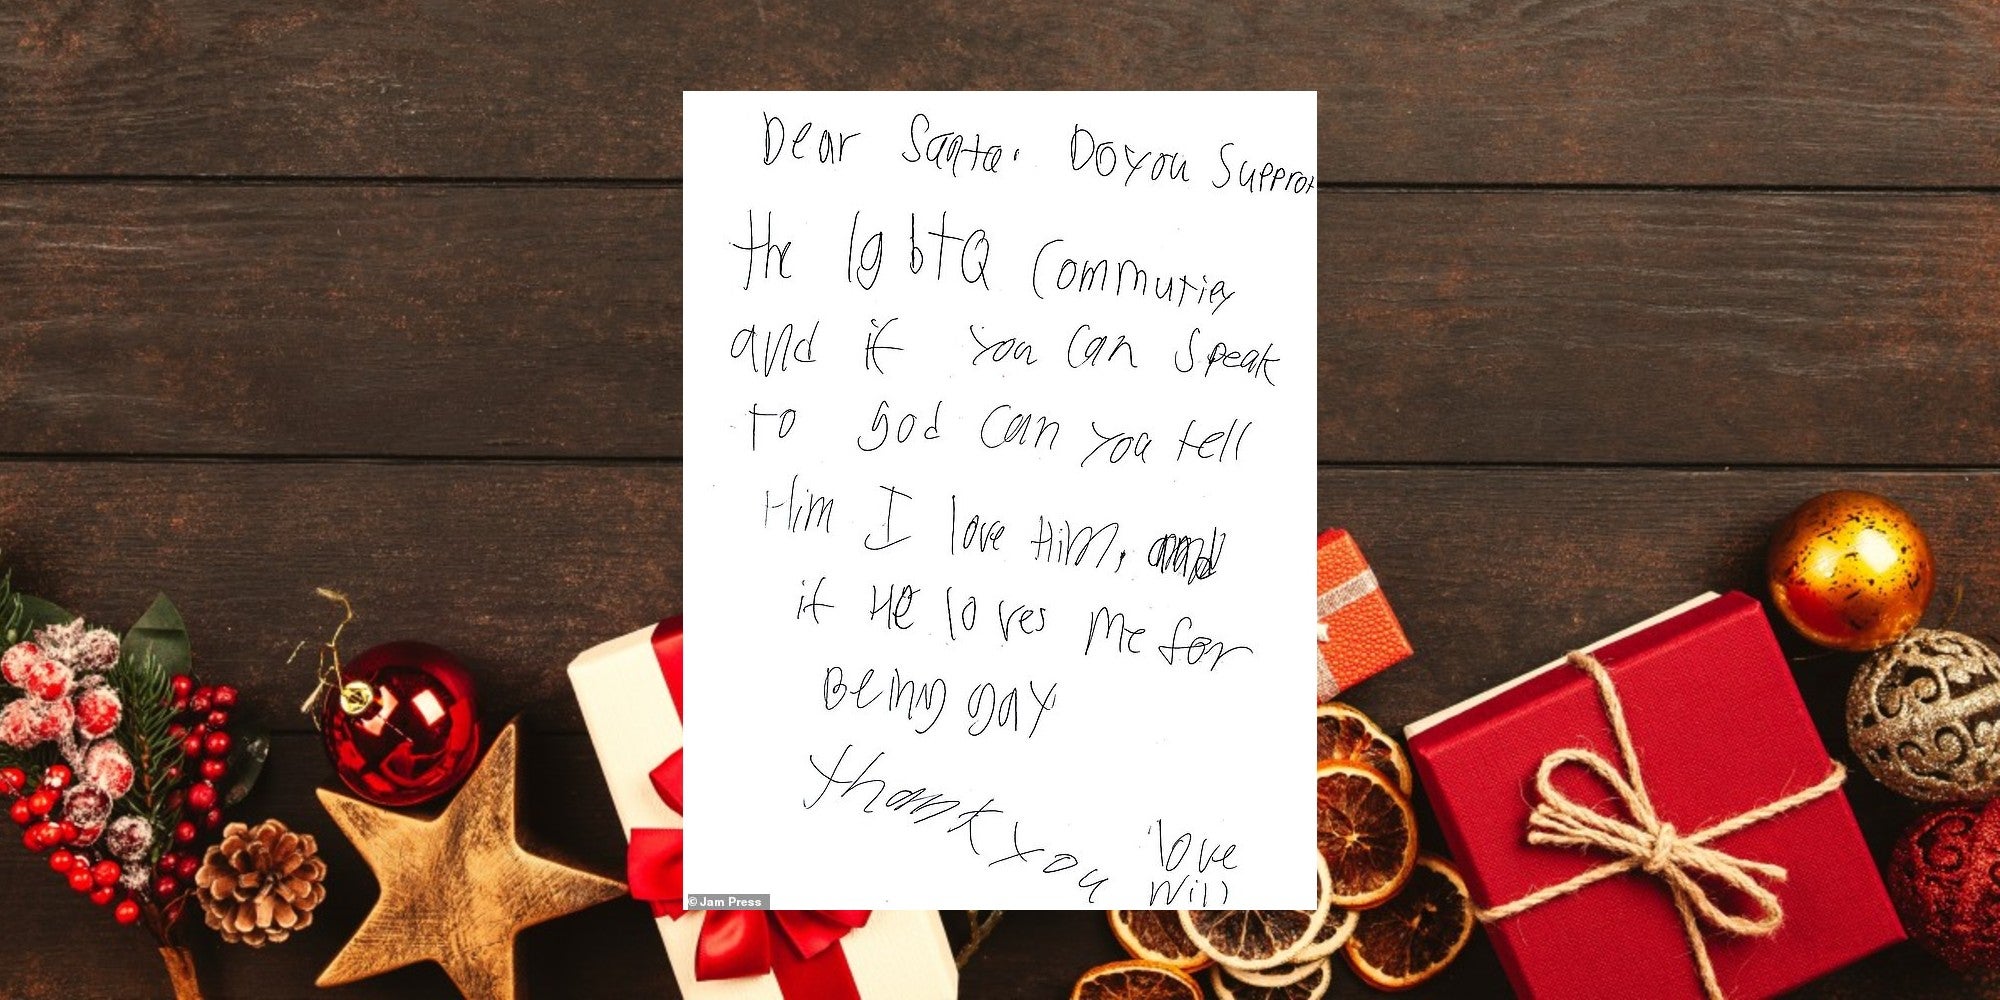 Dear Santa. Do you Supprot
the lgbtQ Communtiey
and if you can speak
to god can you tell
Him I love Him, and
if He loves me for
Being gay
thank you
love
Will
© Jam Press